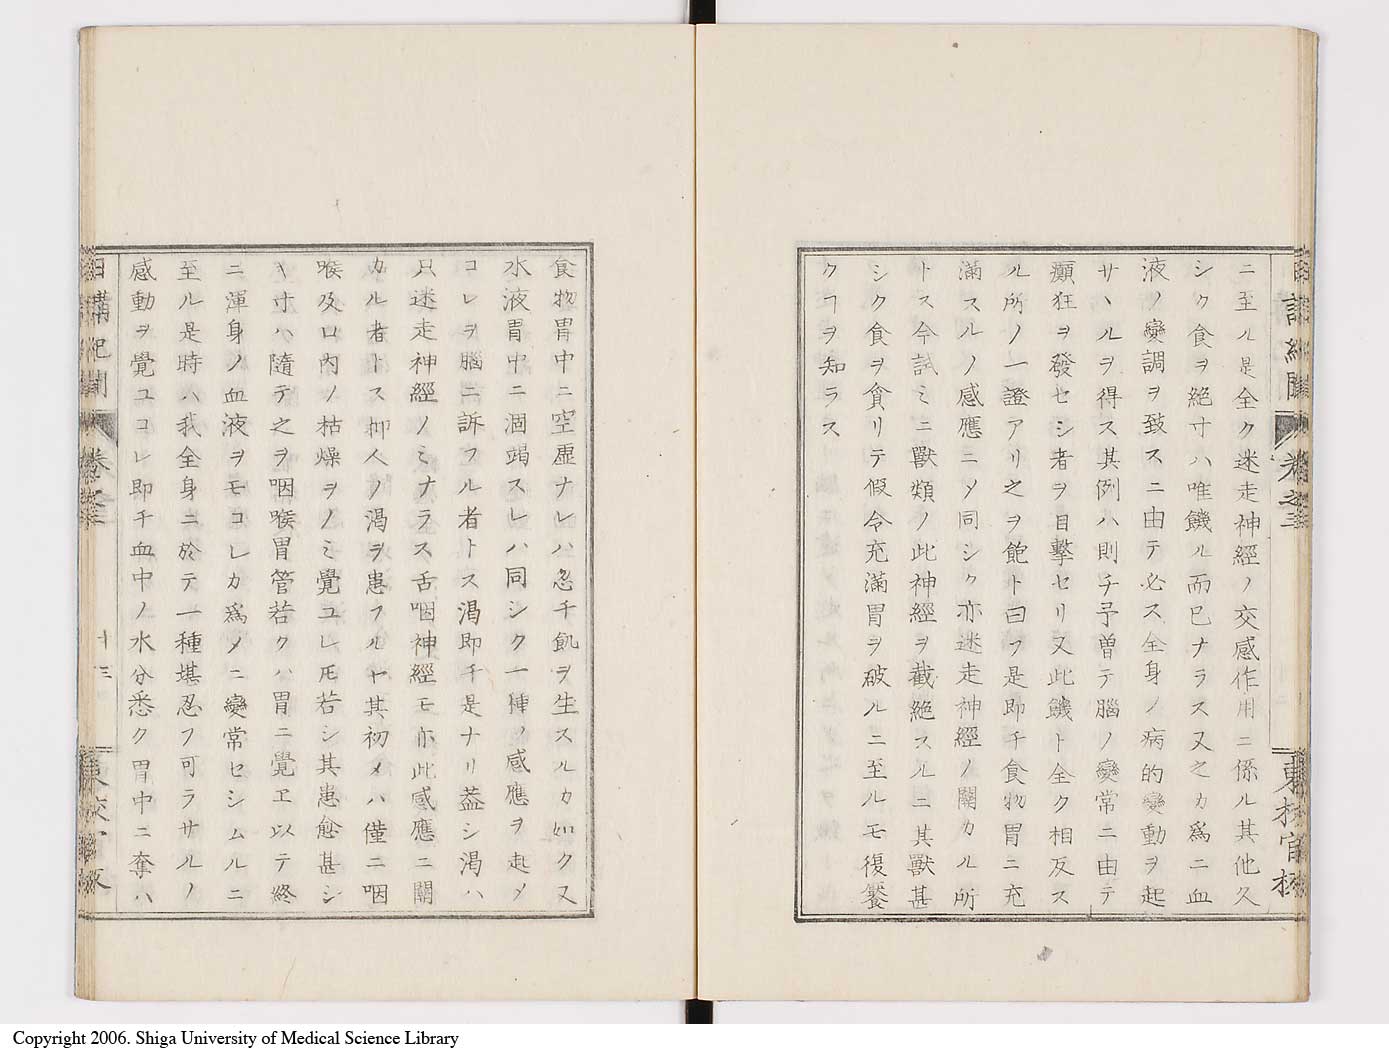 ニ至ル是全ク迷走神經ノ交感作用ニ係ル其他久
シク食ヲ絶寸ハ唯饑ル而已ナラス又之カ爲ニ血
液ノ變調ヲ致スニ由テ必ス全身ノ病的變動ヲ起
サヽルヲ得ス其例ハ則チ予曽テ腦ノ變常ニ由テ
癲狂ヲ發セシ者ヲ目擊セリ又此饑ト全ク相反ス
ル所ノ一證アリ之ヲ飽ト曰フ是即チ食物胃ニ充
滿スルノ感應ニメ同シク亦迷走神經ノ關カル所
トス今試ミニ獸類ノ此神經ヲ截絶スルニ其獸甚
シク食ヲ貪リテ假令充滿胃ヲ破ルニ至ルモ復饜
クヿヲ知ラス
食物胃中ニ空虛ナレハ忽チ飢ヲ生スルカ如ク又
水液胃中ニ涸竭スレハ同シク一種ノ感應ヲ起メ
コレヲ腦ニ訴フル者トス渴即チ是ナリ葢シ渴ハ
只迷走神經ノミナラス舌咽神經モ亦此感應ニ關
カル者トス抑人ノ渴ヲ患フルヤ其初メハ僅ニ咽
喉及口內ノ枯燥ヲノミ覺ユレ𪜈若シ其患愈甚シ
キ寸ハ隨テ之ヲ咽喉胃管若クハ胃ニ覺ヱ以テ終
ニ渾身ノ血液ヲモコレカ爲メニ變常セシムルニ
至ル是時ハ我全身ニ於テ一種堪忍フ可ラサルノ
感動ヲ覺ユコレ即チ血中ノ水分悉ク胃中ニ奪ハ
日講紀聞 卷之三
十三
Copyright 2006. Shiga University of Medical Science Library